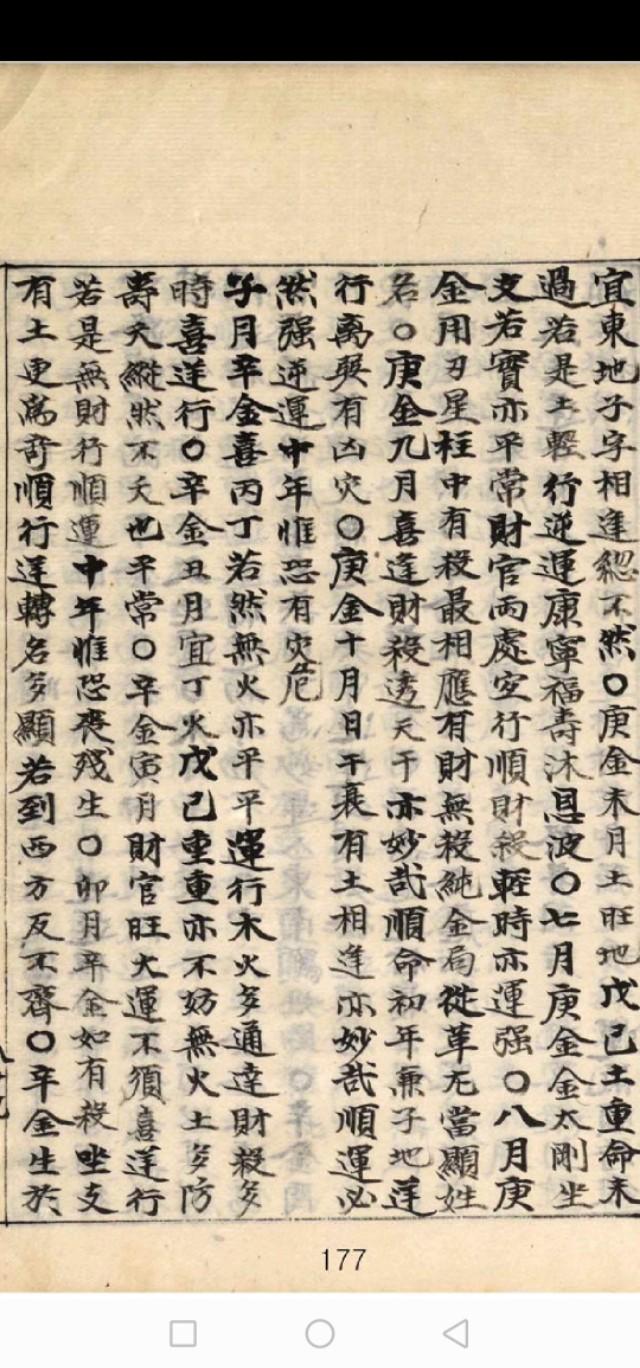 宜東地子字相逢總不然〇庚金未月土旺地戊己土重命未
過若是土輕行逆運康寧福壽沐恩波〇七月庚金金太剛坐
支若實亦平常財官兩處空行順財殺輕時亦運强〇八月庚
金用刃星柱中有殺最相應有財無殺純金局從革无當顯姓
名〇庚金九月喜逢財殺透天干亦妙哉順命初年兼子地逆
行离巽有凶灾〇庚金十月日干衰有土相逢亦妙哉順運必
然强逆運中年惟恐有灾危
子月辛金喜丙丁若然無火亦平平運行木火多通達財殺多
時喜逆行〇辛金丑月宜丁火戊己重重亦不妨無火土多防
壽夭縱然不夭也平常〇辛金寅月財官旺大運不須喜逆行
若是無財行順運中年惟恐喪残生〇卯月辛金如有殺坐支
有土更為奇順行逆轉名多顯若到西方反不齊〇辛金生於
177